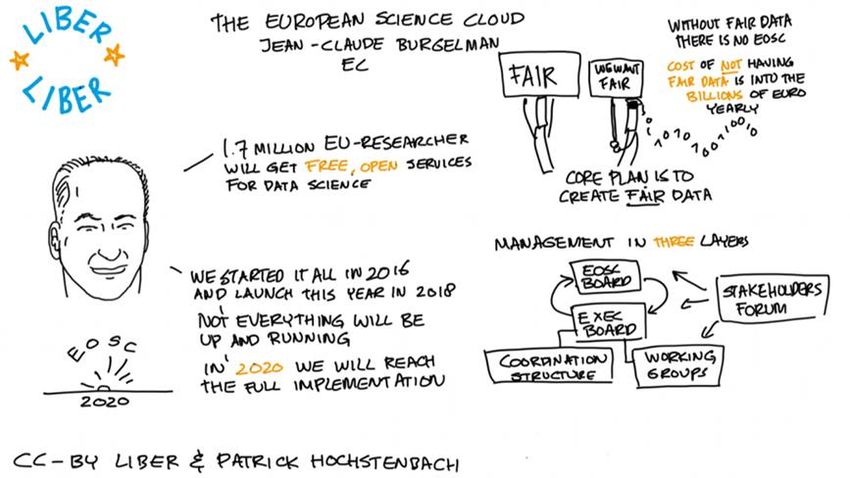 LIBER
LIBER
THE EUROPEAN SCIENCE CLOUD
JEAN-CLAUDE BURGELMAN
EC
1.7 MILLION EU-RESEARCHER
WILL GET FREE, OPEN SERVICES
FOR DATA SCIENCE
WE STARTED IT ALL IN 2016
AND LAUNCH THIS YEAR IN 2018
NOT EVERYTHING WILL BE
UP AND RUNNING
IN 2020 WE WILL REACH
THE FULL IMPLEMENTATION
EOSC
2020
FAIR
WE WANT
FAIR
WITHOUT FAIR DATA
THERE IS NO EOSC
COST OF NOT HAVING
FAIR DATA IS INTO THE
BILLIONS OF EURO
YEARLY
CORE PLAN IS TO
CREATE FAIR DATA
MANAGEMENT IN THREE LAYERS
EOSC
BOARD
EXEC
BOARD
STAKEHOLDERS
FORUM
COORDINATION
STRUCTURE
WORKING
GROUPS
CC-BY LIBER & PATRICK HOCHSTENBACH